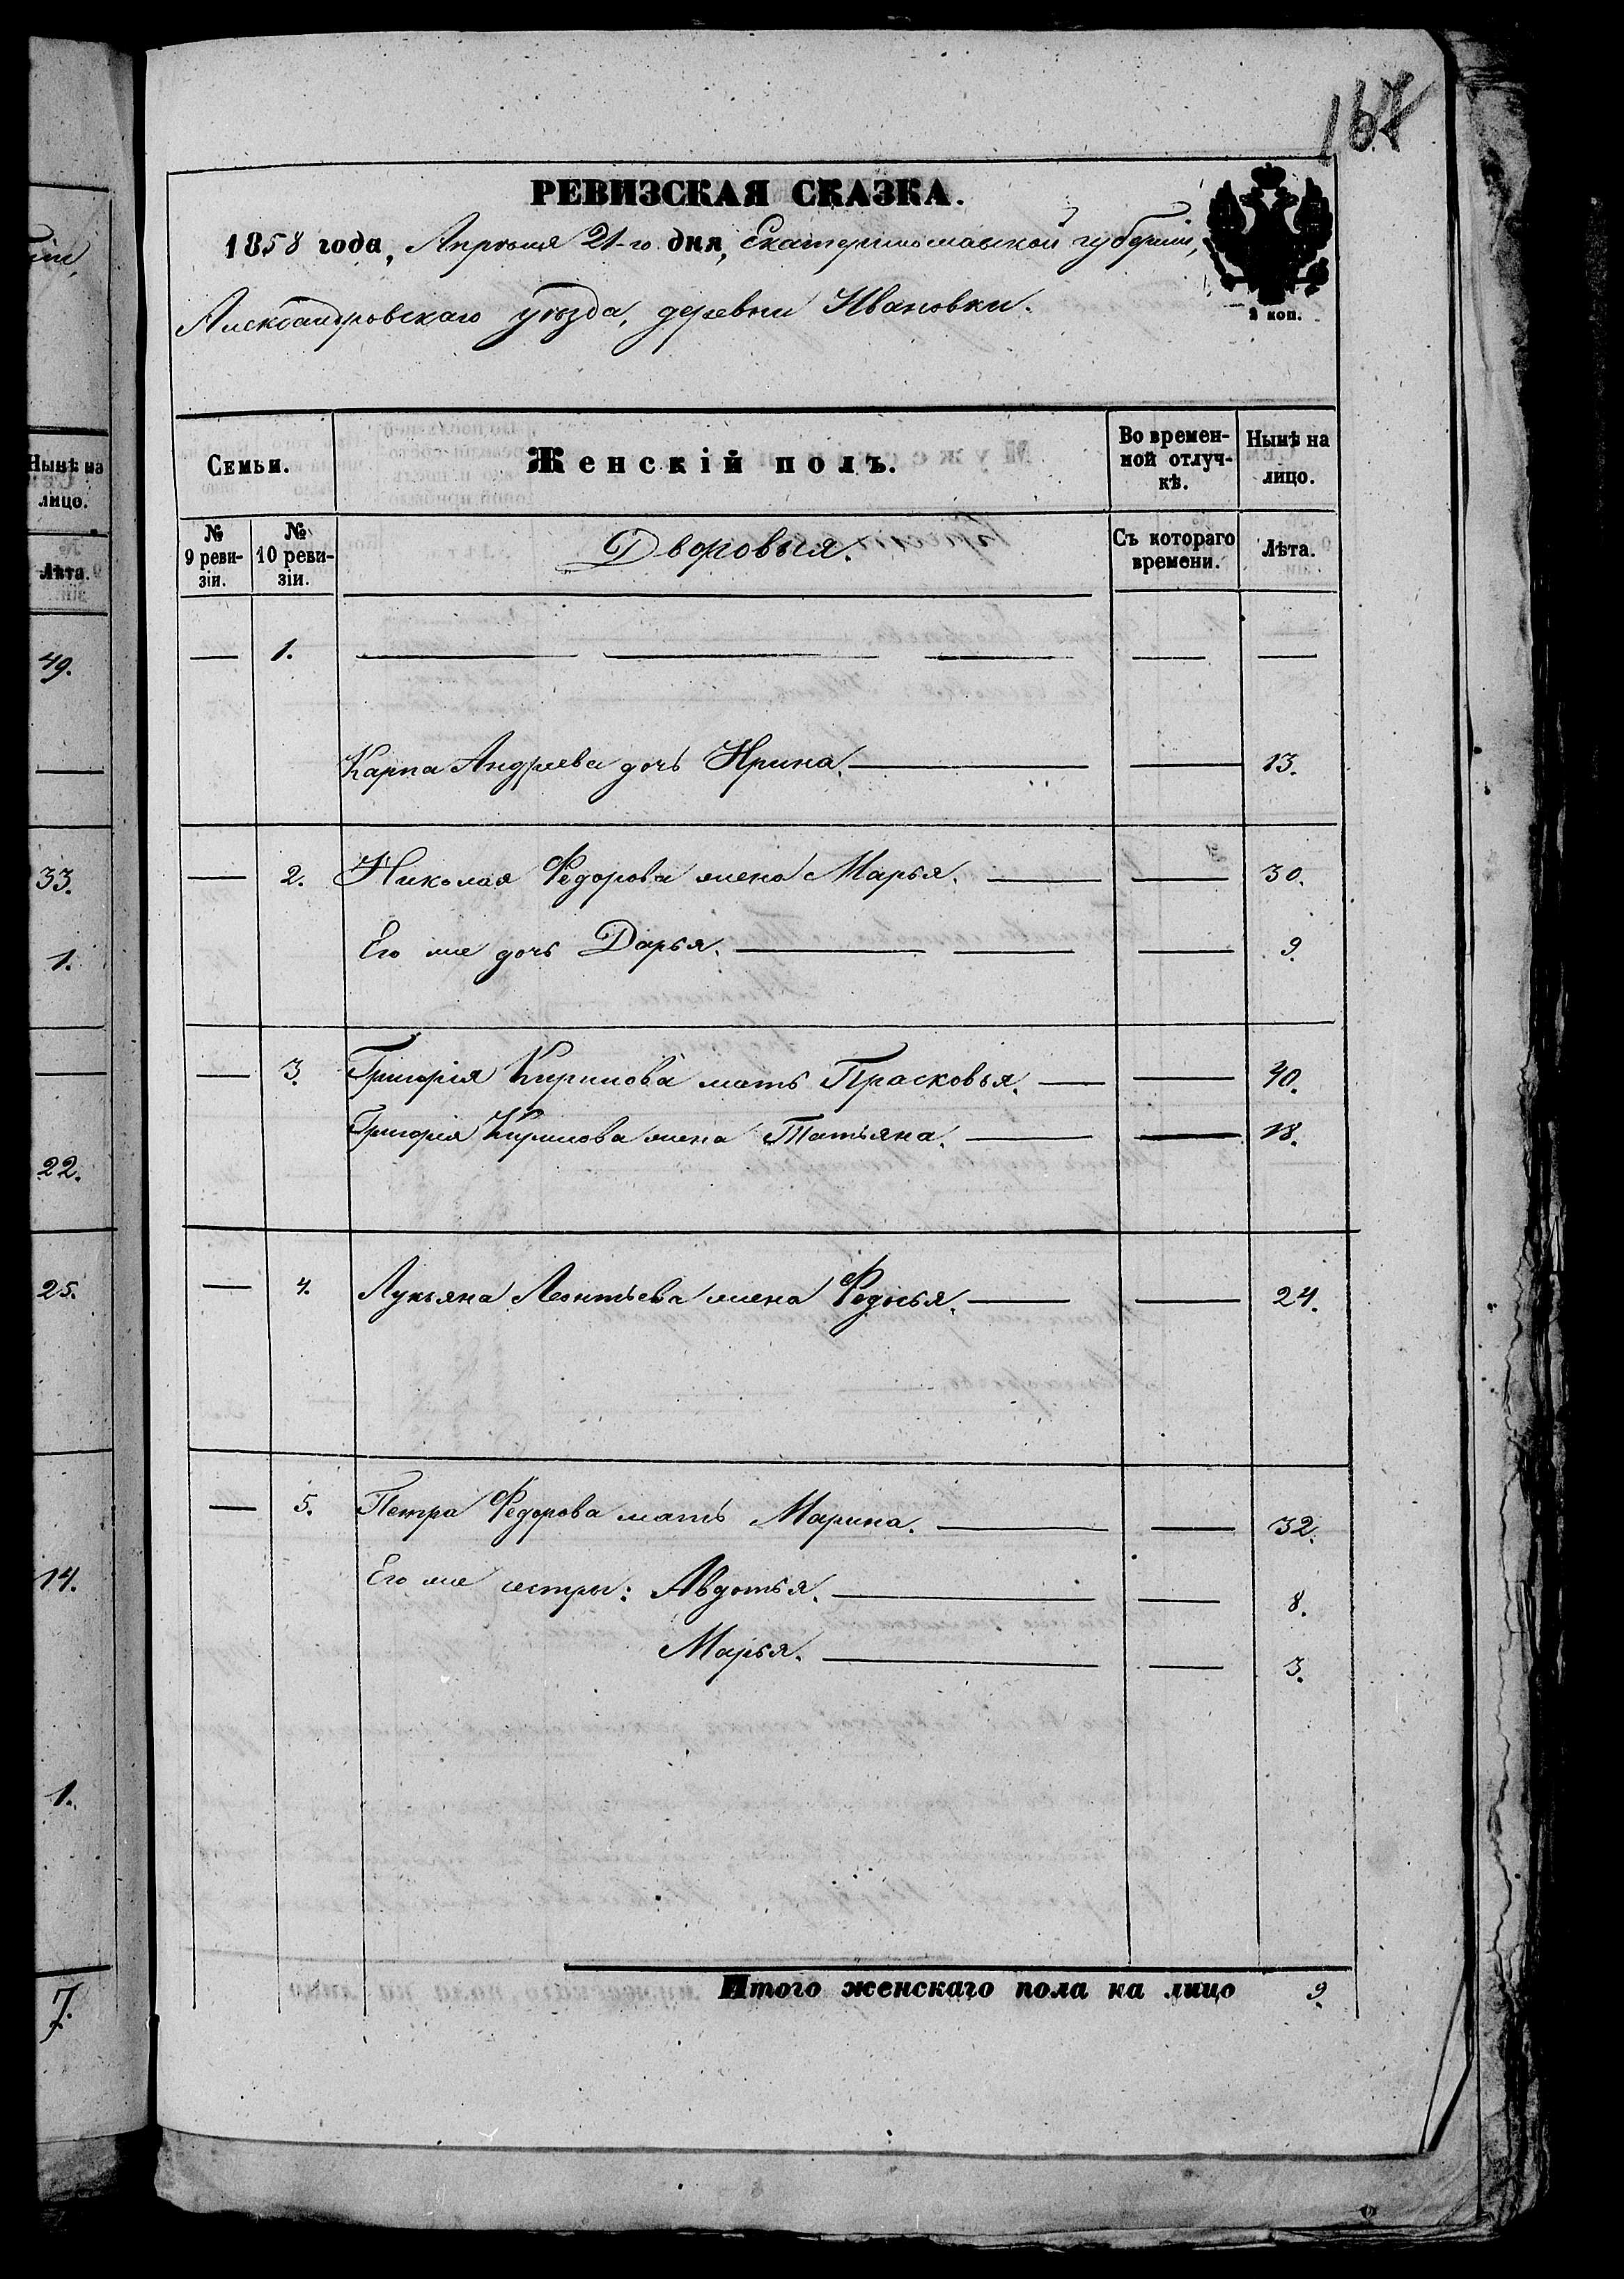 167
РЕВИЗСКАЯ СКАЗКА.
1858 года, Апрѣля 21-го дня, Екатеринославской губерніи,
2 коп.
Александровскаго уѣзда, деревни Ивановки.
Семьи.
Женскій полъ.
Во времен-
ной отлуч-
кѣ.
Нынѣ на
лицо.
№
9 реви-
зіи.
№
10 реви-
зіи.
Дворовыя.
Съ котораго
времени.
Лѣта.
1.
Карпа Андреева дочь Ирина. 13.
2. Николая Федорова жена Марья. 30.
Его же дочь Дарья. 9.
3. Григорія Кирилова мать Прасковья. 40.
Григорія Кирилова жена Татьяна. 18.
4. Лукьяна Леонтьева жена Федосья. 24.
5. Петра Федорова мать Марина. 32.
Его же сестры: Авдотья. 8.
Марья. 3.
Итого женскаго пола на лицо 9.
Нынѣ на
лицо.
Лѣта.
49.
33.
1.
22.
25.
14.
1.
7.